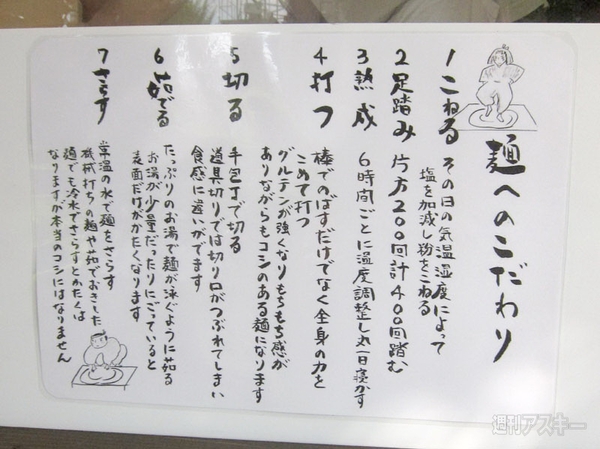 麺へのこだわり
1 こねる その日の気温湿度によって
塩を加減し粉をこねる
2 足踏み 片方200回計400回踏む
3 熟成 6時間ごとに温度調整し丸一日寝かす
4 打つ 棒でのばすだけでなく全身の力を
こめて打つ
グルテンが強くなりもちもち感が
ありながらもコシのある麺になります
5 切る 手包丁で切る
道具切りでは切り口がつぶれてしまい
食感に違いがでます
6 茹でる たっぷりのお湯で麺が泳ぐように茹る
お湯が少量だったりにごっていると
表面だけがかたくなります
7 さらす 常温の水で麺をさらす
機械打ちの麺や茹でおきした
麺でも冷水でさらすとかたくは
なりますが本当のコシにはなりません
週刊アスキー